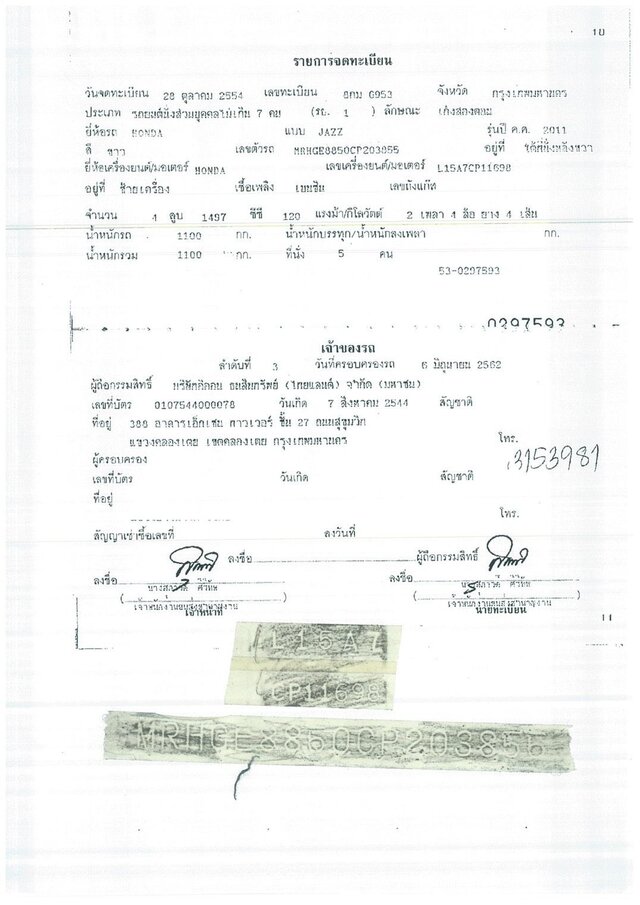 10
รายการจดทะเบียน
วันจดทะเบียน 28 ตุลาคม 2554 เลขทะเบียน ฎกม 6953 จังหวัด กรุงเทพมหานคร
ประเภท รถยนต์นั่งส่วนบุคคลไม่เกิน 7 คน (รย. 1 ) ลักษณะ เก๋งสองตอน
ยี่ห้อรถ HONDA แบบ JAZZ รุ่นปี ค.ศ. 2011
สี ขาว เลขตัวรถ MRHGE8850CP203855 อยู่ที่ ใต้ที่นั่งหลังขวา
ยี่ห้อเครื่องยนต์/มอเตอร์ HONDA เลขเครื่องยนต์/มอเตอร์ L15A7CP11698
อยู่ที่ ซ้ายเครื่อง เชื้อเพลิง เบนซิน เลขถังแก๊ส
จำนวน 4 สูบ 1497 ซีซี 120 แรงม้า/กิโลวัตต์ 2 เพลา 4 ล้อ ยาง 4 เส้น
น้ำหนักรถ 1100 กก. น้ำหนักบรรทุก/น้ำหนักลงเพลา กก.
น้ำหนักรวม 1100 กก. ที่นั่ง 5 คน
53-0297593
0297593
เจ้าของรถ
ลำดับที่ 3 วันที่ครอบครองรถ 6 มิถุนายน 2562
ผู้ถือกรรมสิทธิ์ บริษัทอิออน ธนสินทรัพย์ (ไทยแลนด์) จำกัด (มหาชน)
เลขที่บัตร 0107544000078 วันเกิด 7 สิงหาคม 2544 สัญชาติ
ที่อยู่ 388 อาคารเอ็กเชน ทาวเวอร์ ชั้น 27 ถนนสุขุมวิท
แขวงคลองเตย เขตคลองเตย กรุงเทพมหานคร โทร.
3153981
ผู้ครอบครอง
เลขที่บัตร วันเกิด สัญชาติ
ที่อยู่
โทร.
สัญญาเช่าซื้อเลขที่ ลงวันที่
ลงชื่อ ผู้ถือกรรมสิทธิ์
ลงชื่อ ลงชื่อ
เจ้าพนักงานขนส่งชำนาญงาน เจ้าพนักงานขนส่งชำนาญงาน
เจ้าหน้าที่ นายทะเบียน
11
L15A7
CP11698
MRHGE8850CP203855